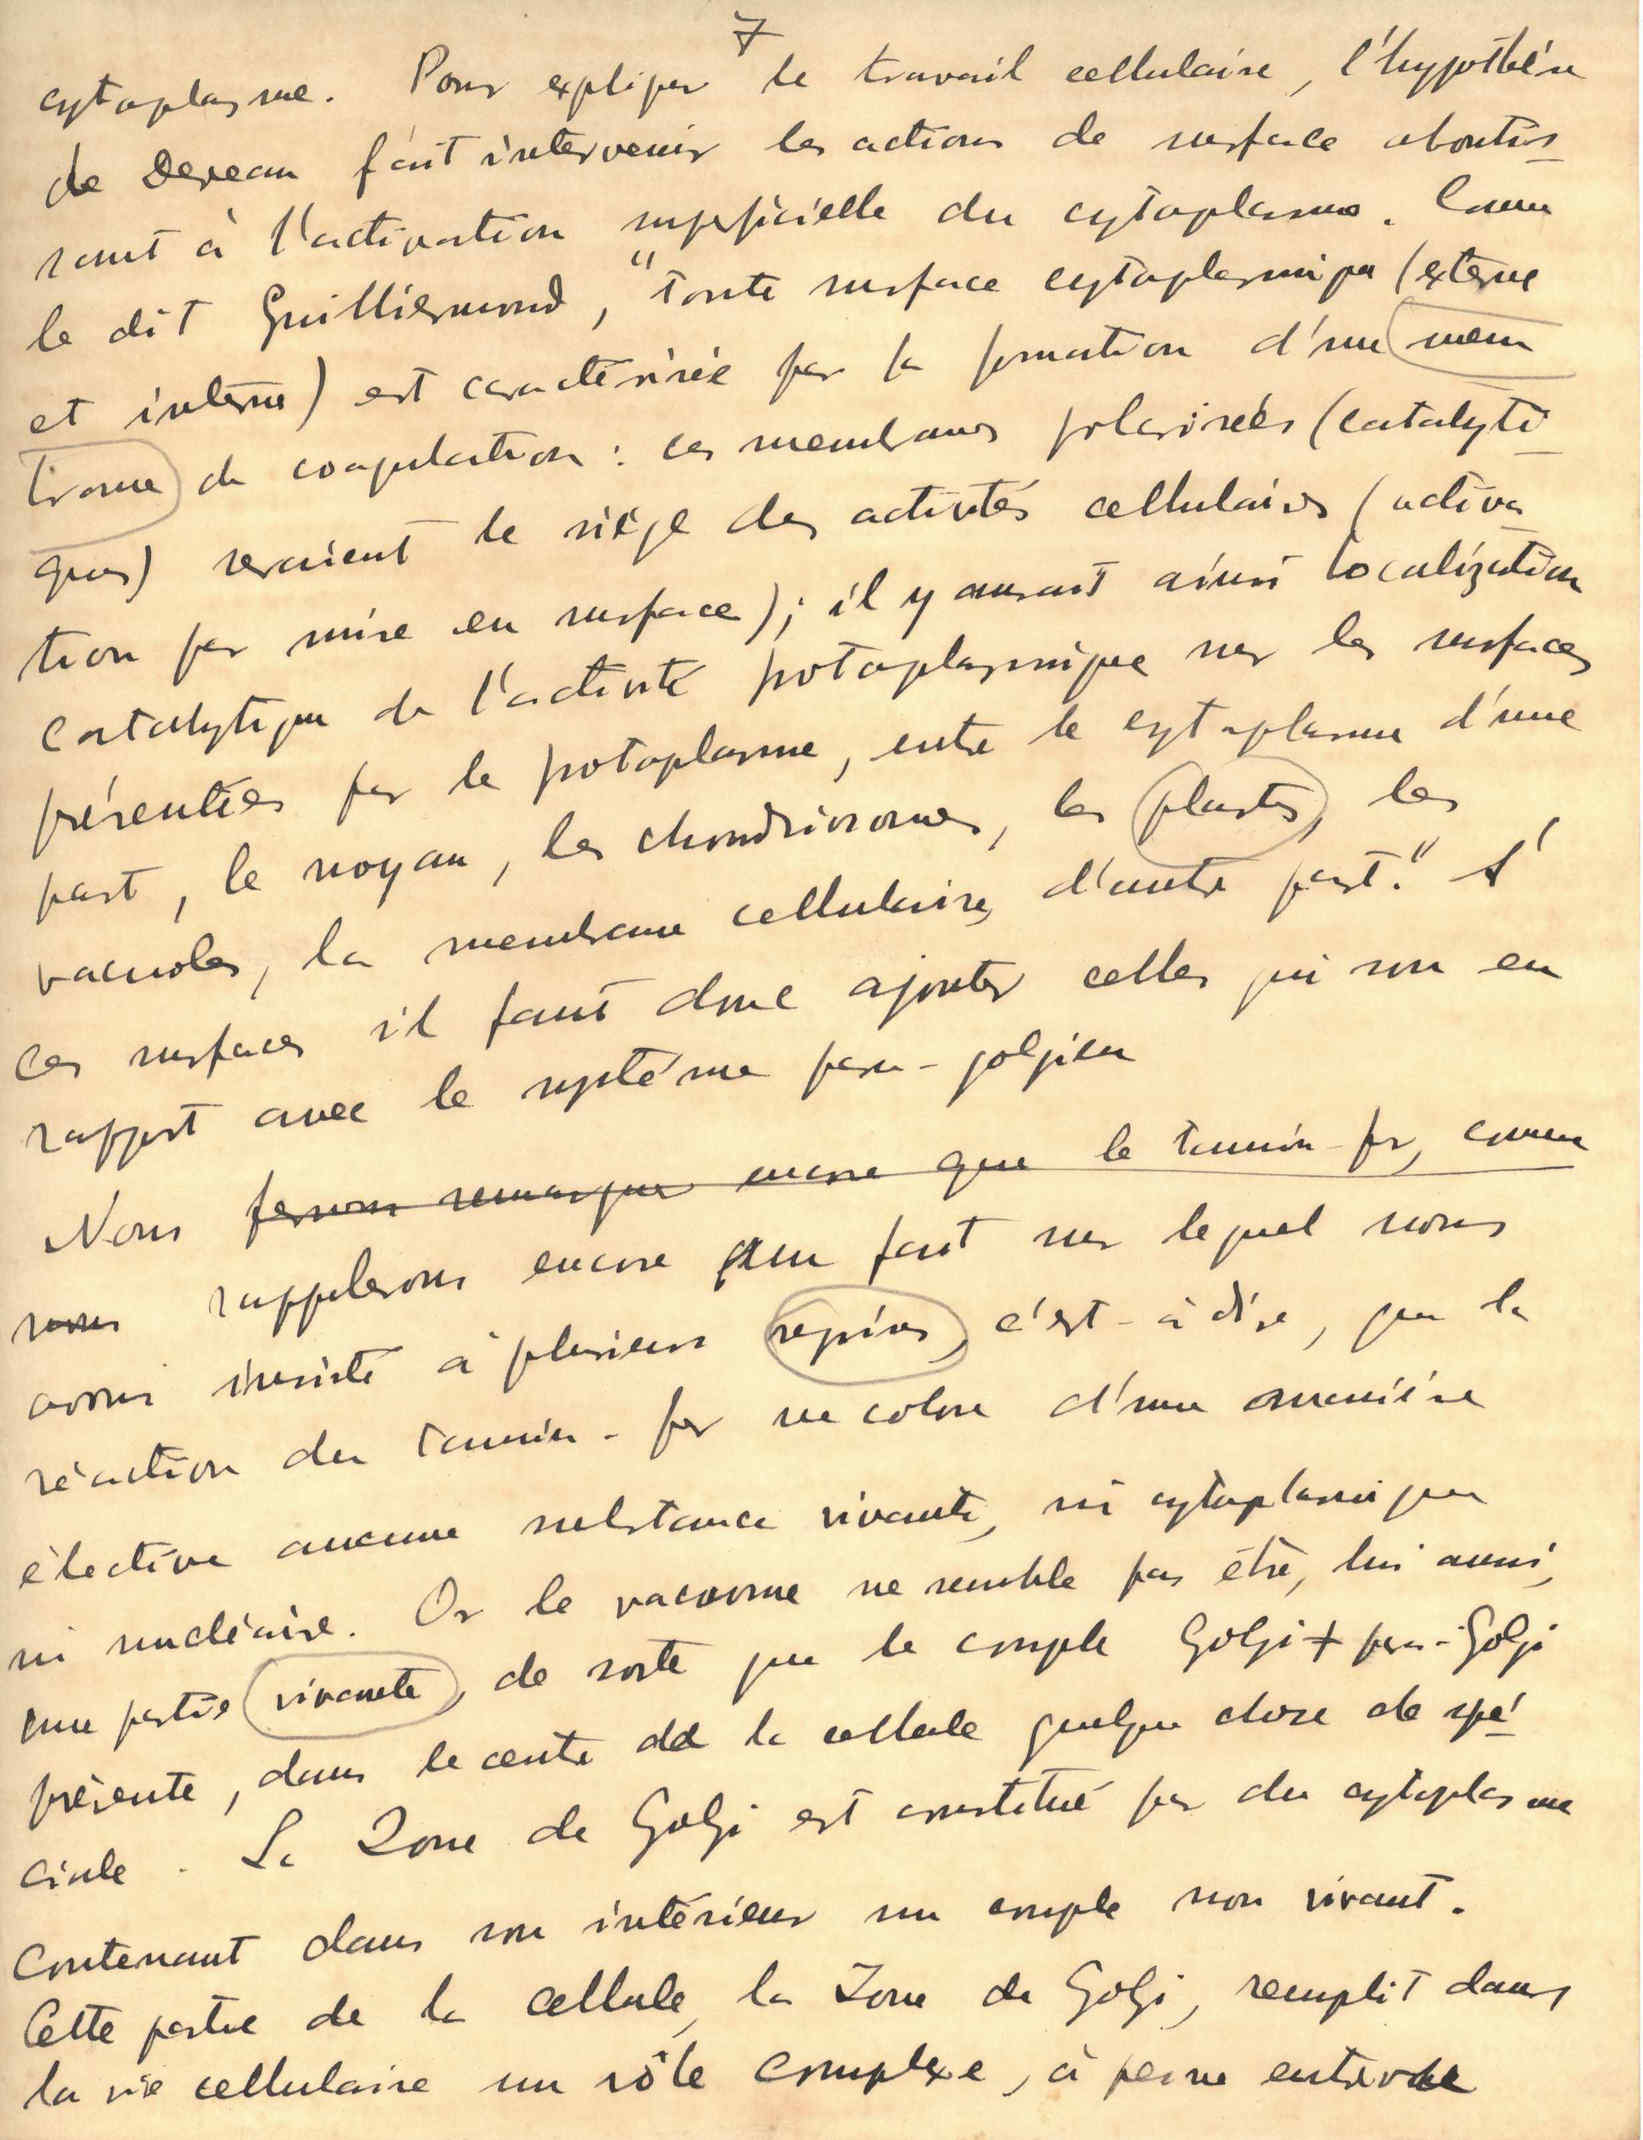 7
cytoplasme. Pour expliquer le travail cellulaire, l'hypothèse
de Devaux fait intervenir les actions de surface aboutis-
sant à l'activation superficielle du cytoplasme. Comme
le dit Guilliermond, "toute surface cytoplasmique (externe
et interne) est caractérisée par la formation d'une mem
brane de coagulation : ces membranes polarisées (catalyti-
ques) seraient le siège des activités cellulaires (activa
tion par mise en surface); il y aurait ainsi localization
catalytique de l'activité protoplasmique sur les surfaces
présentées par le protoplasme, entre le cytoplasme d'une
part, le noyau, les chondriosomes, les plastes, les
vacuoles, la membrane cellulaire, d'autre part." A
ces surfaces il faut donc ajouter celles qui son en
rapport avec le système para-golgien
Nous ferons remarquer encore que le tannin-fer, comme
nous rappelerons encore un fait sur lequel nous
avons insisté à plusieurs reprises, c'est-à dire, que la
réaction du tannin-fer ne colore d'une manière
élective aucune substance vivante, ni cytoplasmique
ni nucléaire. Or le vacuome ne semble pas être, lui aussi,
une partie vivante, de sorte que le couple Golgi + para-Golgi
présente, dans le centre de la cellule quelque chose de spé-
ciale. La Zone de Golgi est constitué par du cytoplasme
contenant dans son intérieur un couple non vivant.
Cette partie de la cellule, la Zone de Golgi, remplit dans
la vie cellulaire un rôle complexe, à peine entrevue